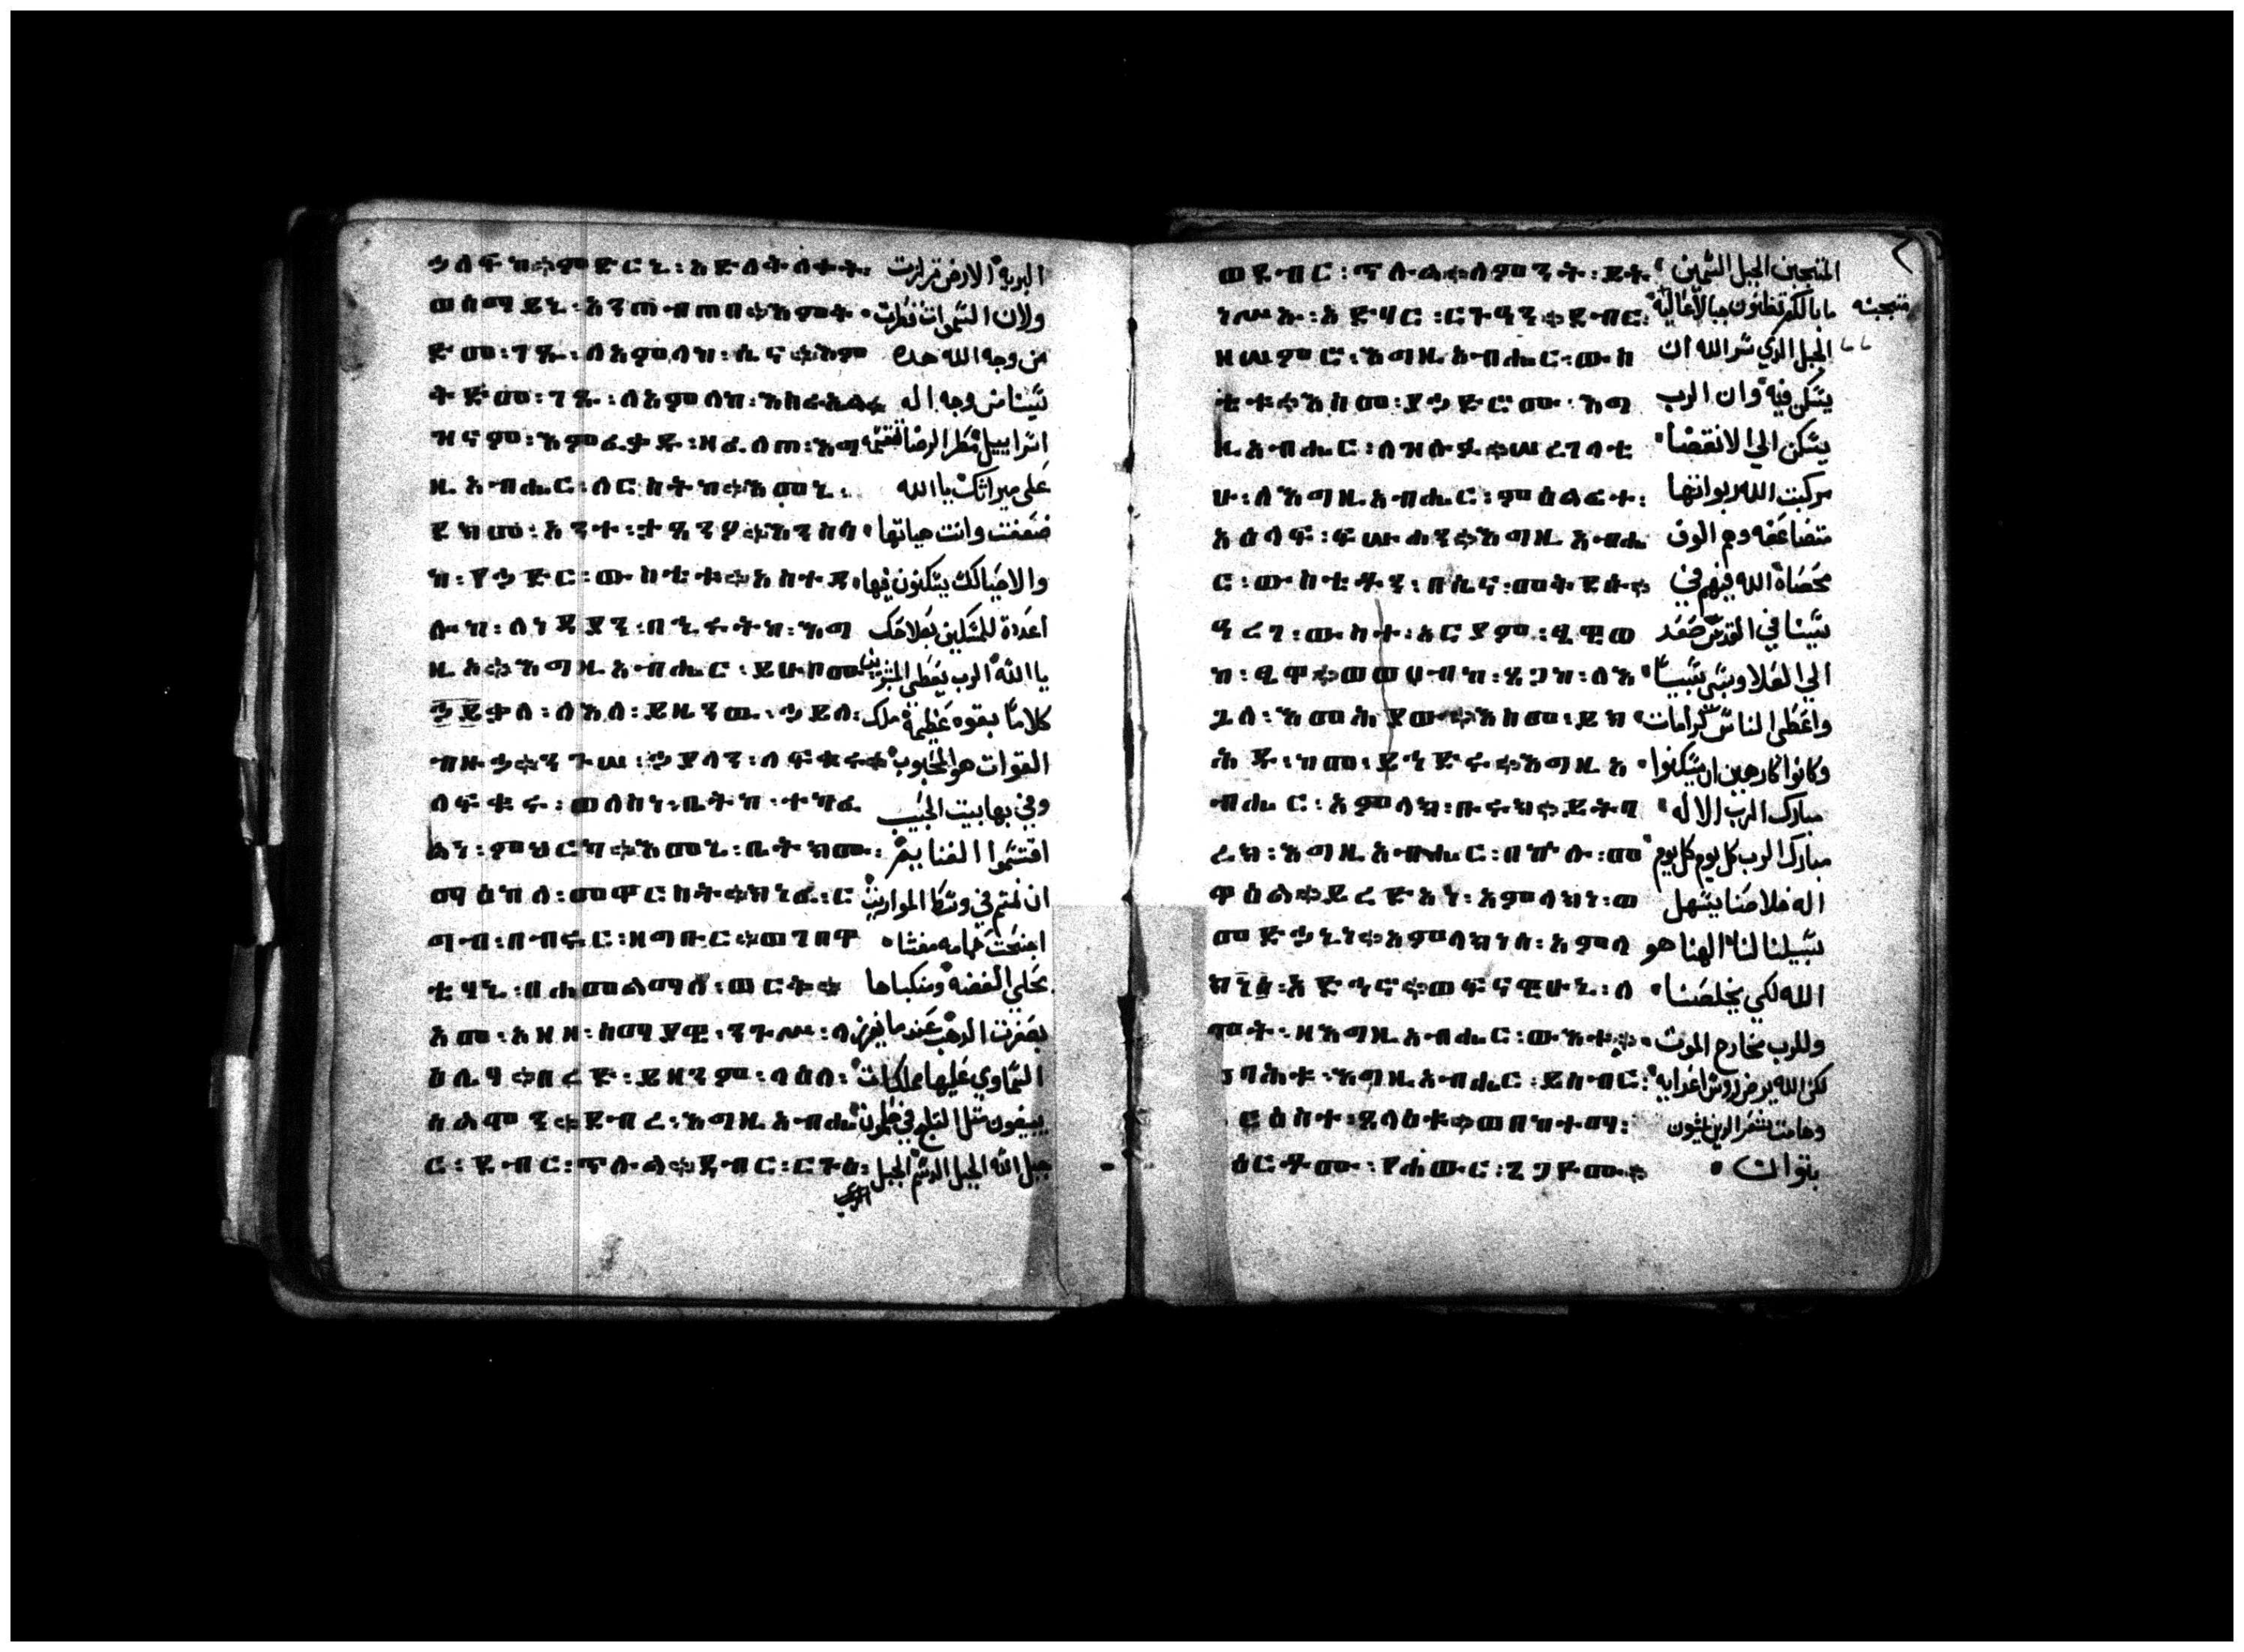 ኃለፍከ።ምድርኒ፡አድለቅለቀት፡ البريه الارض تزلزلت
ወሰማይኒ፡አንጠብጠበ።እምቅ ولان السموات قطرت
ድመ፡ገጹ፡ለአምላከ፡ሲና።እም من وجه الله هده
ቅድመ፡ገጹ፡ለአምላከ፡እስራኤል። سينا من وجه اله
ዝናመ፡እምፈቃድ፡ዘፈለጠ፡እግ اسراييل مطر الرضا تقسمه
ዚአብሔር፡ለርስትከ።እመኒ፡ على ميراتك يا الله
ደክመ፡አንተ፡ታጸንዖ።እንስሳ ضعفت وانت هياتها
ከ፡የኃድር፡ውስቴታ።አስተዳ والاحيالك يسكنون فيها
ሎከ፡ለነዳያን፡በኂሩትከ፡እግ اعددة للمسكين بصلاحك
ዚኦ።እግዚአብሔር፡ይሁብ፡ يا الله الرب يعطي المبشرين
ቃለ፡ለእለ፡ይዜንዉ፡ኃይለ፡ كلاما بقوه عظيمة ملك
ብዙኃ።ንጉሠ፡ኃያላን፡ለፍቁሩ። القوات هو المحبوب
ለፍቁሩ፡ወለስነ፡ቤትከ፡ተካፈ وفي بها بيت الحبيب
ልነ፡ምህርካ።እመኒ፡ቤትክሙ፡ اقتسموا الغنايم
ማእከለ፡መዋርስት።ክነፈ፡ር ان نمتم في وسط المواريث
ግብ፡በብሩር፡ዘግቡር።ወገበዋ اجنحت حمامه مغشاه
ቲሃኒ፡በሐመልማለ፡ወርቅ። بحلي الفضه ومنكباها
አመ፡አዘዘ፡ሰማያዊ፡ንጉሥ፡ላ بصفرت الدهب عند ما يفرز
ዕሌሃ።በረድ፡ይዘንም፡ላዕለ፡ السماوي عليها مملكات
ሰልሞን።ደብረ፡እግዚአብሔ يبيضون متل التلج في صلمون
ር፡ደብር፡ጥሉል።ደብር፡ርጉዕ፡ جبل الله الجبل الدسم الجبل
ወደብር፡ጥሉል።ለምንት፡ይት المتجبن الجبل السمين
ነሥኡ፡አድባር፡ርጉዓን።ደብር፡ ما بالكم تظنون جبالا عاليه متجبنه
ዘሠምሮ፡እግዚአብሔር፡ውስ الجبل الدي سر الله ان
ቴቱ።እስመ፡የኃድሮሙ፡እግ يسكن فيه وان الرب
ዚአብሔር፡ለዝሉፉ።ሠረገላቲ يسكن الي الانقضا
ሁ፡ለእግዚአብሔር፡ምዕልፊት፡ مركبت الله ربواتها
አእላፍ፡ፍሡሐን።እግዚአብሔ متضاعفه وهم الوف
ር፡ውስቴቶን፡በሲና፡መቅደሱ። مخصاه الله فيهم في
ዓረገ፡ውስተ፡አርያም፡ፄዊወ سينا في القدس صعد
ከ፡ፄዋ።ወወሀብከ፡ጸጋከ፡ለእ الي العلا وسبى سبيا
ጓለ፡እመሕያው።እስመ፡ይክ واعطى الناس كرامات
ሕዱ፡ከመ፡ይኅድሩ።እግዚአ وكانوا كارهين ان يسكنوا
ብሔር፡አምላክ፡ቡሩክ።ይትባ مبارك الرب الاله
ረክ፡እግዚአብሔር፡በኵሉ፡መ مبارك الرب كل يوم كل يوم
ዋዕል።ይረድአነ፡አምላክነ፡ወ اله خلاصنا يسهل
መድኃኒነ።አምላክነሰ፡አምላ سبيلنا لنا الهنا هو
ክነ፡አድኅኖ።ወፍናዊሁኒ፡ለ الله لكي يخلصنا
ሞት፡ዘእግዚአብሔር፡ውእቱ። وللرب مخارج الموت
ባሕቱ፡እግዚአብሔር፡ይሰብር፡ لكن الله يرض روس اعدايه
ርእስተ፡ጸላዕቱ።ወበከተማ፡ وهامت شعر الدين يمشون
ስርቶሙ፡የሐውር፡ጌጋዮሙ። بتوان